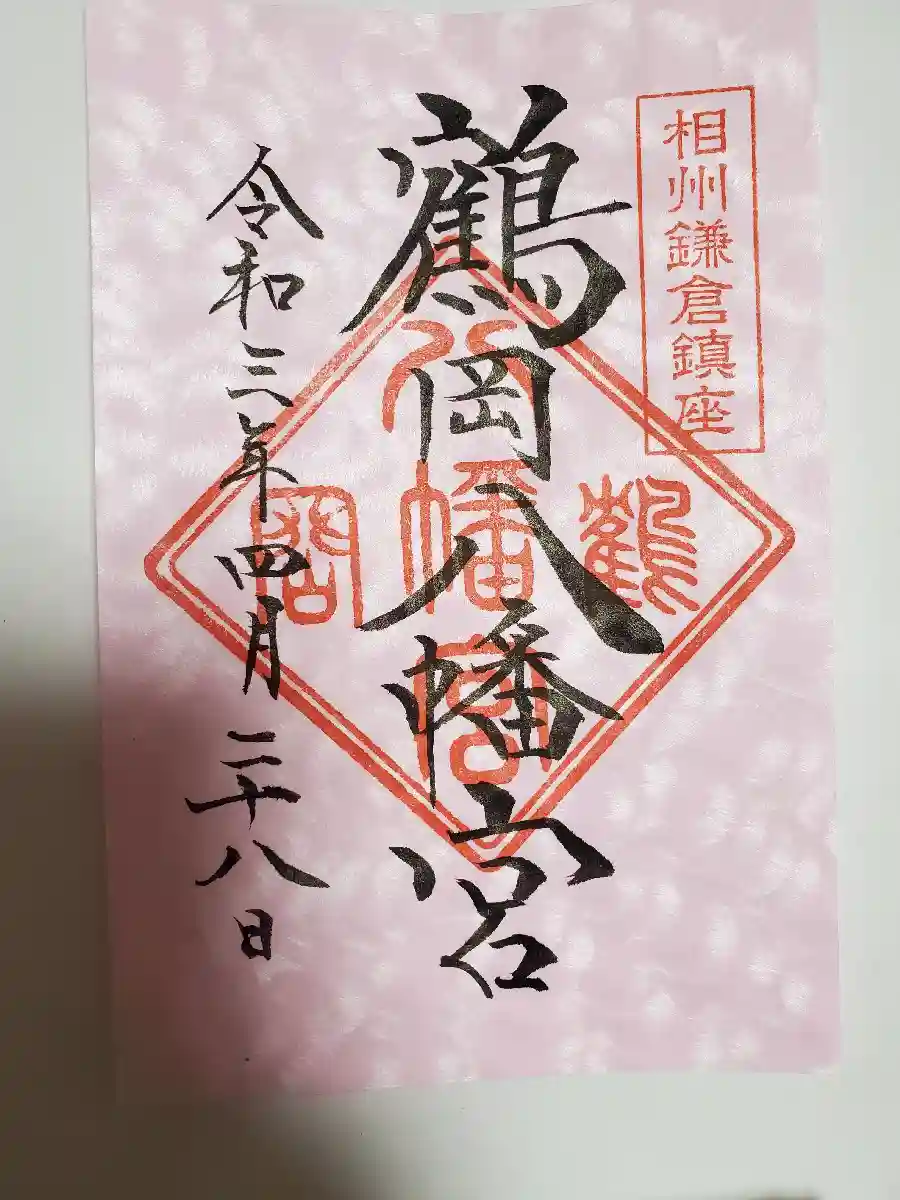 相州鎌倉鎮座
鶴岡八幡宮
鶴岡八幡宮
令和三年四月二十八日